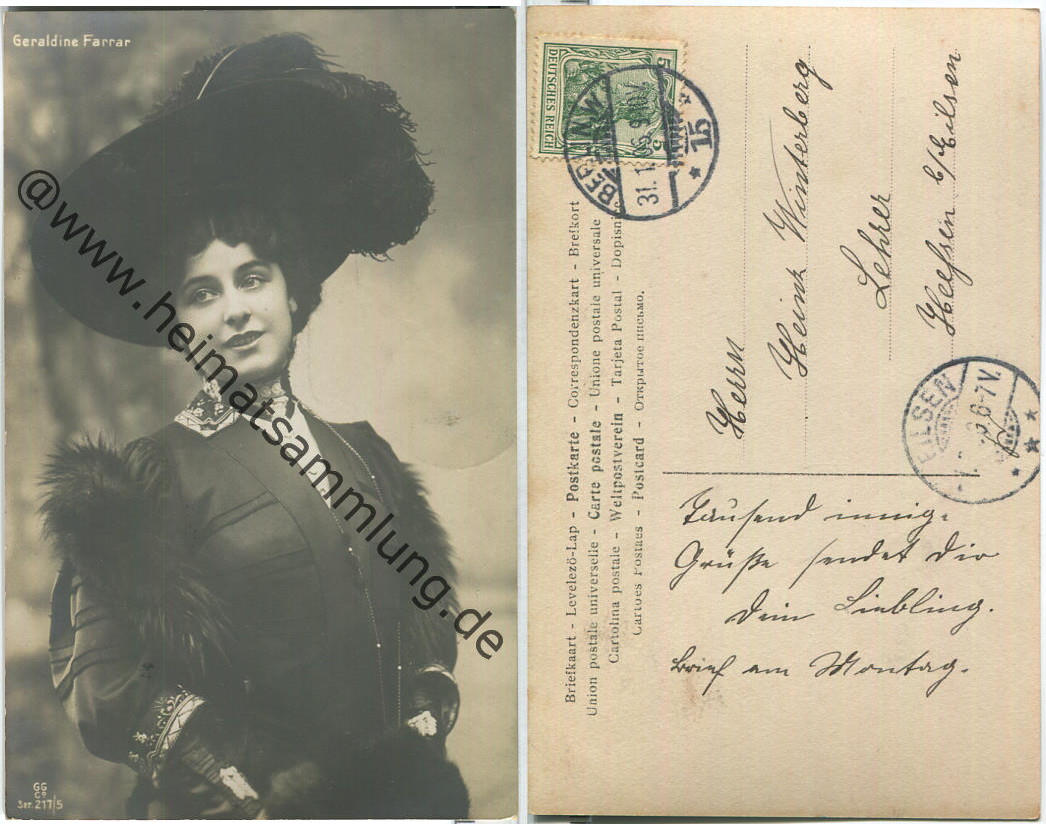 Geraldine Farrar
@www.heimatsammlung.de
GG
Co
Ser. 217/5
DEUTSCHES REICH
5
5
BERLIN N.W.
31.1.
15
Briefkaart - Levelező-Lap - Postkarte - Correspondenzkart - Brefkort
Union postale universelle - Carte postale - Unione postale universale
Cartolina postale - Weltpostverein - Tarjeta Postal - Dopisnic
Cartoes Postaes - Postcard - Открытое письмо.
Herrn
Heinr. Winterberg
Lehrer
Heeßen b/Eilsen
EILSEN
6-7V.
Tausend innige
Grüße sendet Dir
Dein Liebling.
Brief am Montag.